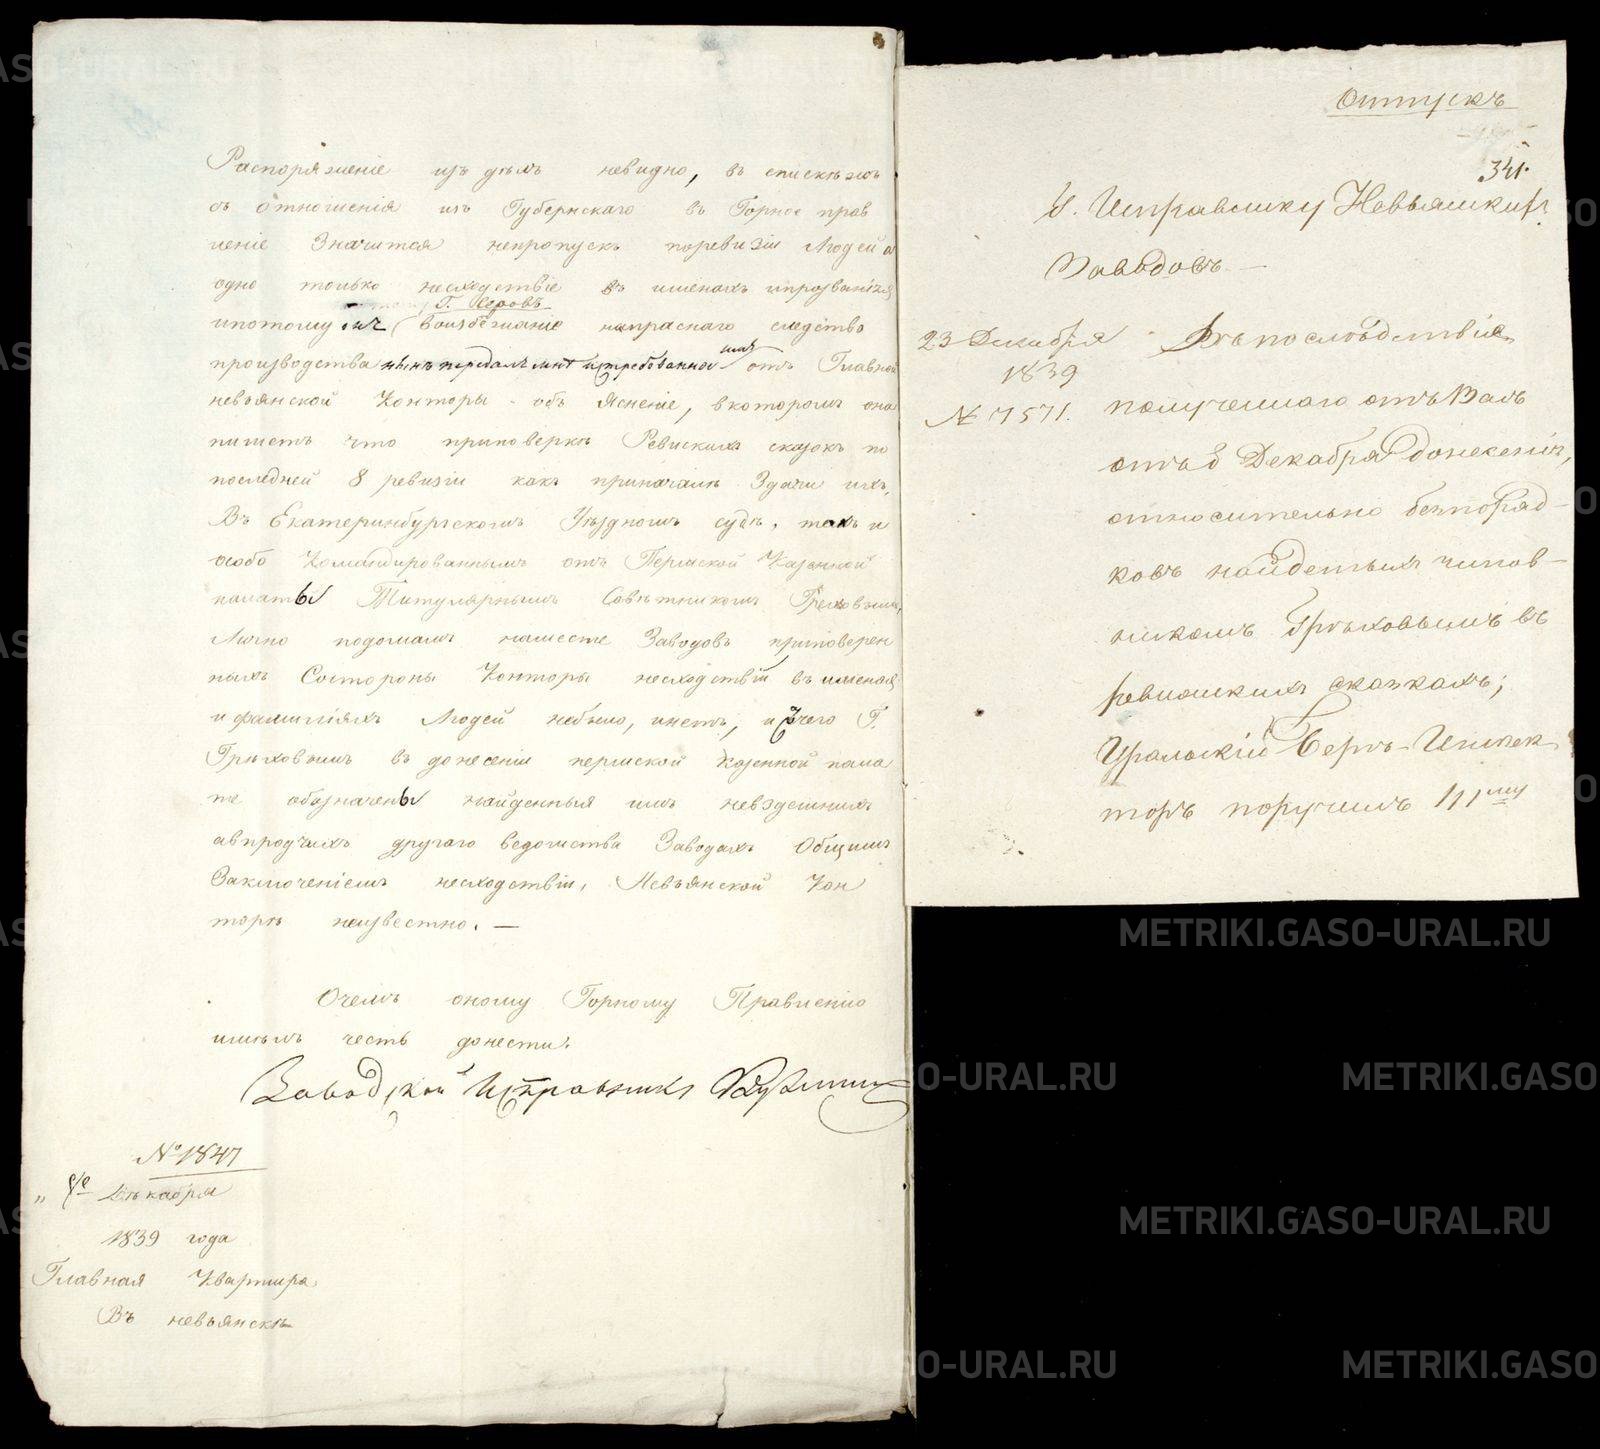 Распоряженіе изъ дѣлъ невидно, въ спискѣжъ
съ отношенія изъ Губернскаго въ Горное прав
леніе Значитса непропускъ поревизіи Людей а
одно только несходствіе въ именахъ ипрозваніяхъ
Г. Серовъ
ипотому онъ воизбежаніе напраснаго следство
производства истребованное отъ Главной
невьянской Конторы объ Ясненіе, вкоторомъ она
пишетъ что приповеркѣ Ревискихъ сказокъ по
последней 8 ревизіи какъ приначалѣ Здачи ихъ,
Въ Екатеринбургскомъ Уѣздномъ судѣ, такъ и
особо Командированнымъ отъ Пермской Казенной
палаты Титулярнымъ Совѣтникомъ Греховымъ,
Лично подомамъ наместе Заводовъ приповерен
ныхъ Состороны Конторы несходствій въ именахъ
и фамиліяхъ Людей небыло, инетъ, и счего Г.
Грѣховымъ въ донесеніи пермской Казенной пала
те обозначены найденныя имъ невздешнихъ
авпрочихъ другаго ведомства Заводахъ Общимъ
Заключеніемъ несходствіи, Невьянской Кон
торѣ неизвестно. —
Очемъ оному Горному Правленію
имѣемъ честь донести.
Заводской Исправникъ
№ 1847
Декабря
1839 года
Главная Квартира
Въ невьянскѣ
Отпускъ
341.
Г. Исправнику Невьянскихъ
Заводовъ. —
23 Декабря
1839
№ 7571.
Въ послѣдствіе
полученнаго отъ Васъ
отъ 8 Декабря донесенія,
относительно безпоряд-
ковъ найденныхъ чинов-
никомъ Грѣховымъ въ
ревизскихъ сказкахъ;
Уральскій Бергъ-Инспек
торъ поручилъ 111му
METRIKI.GASO-URAL.RU